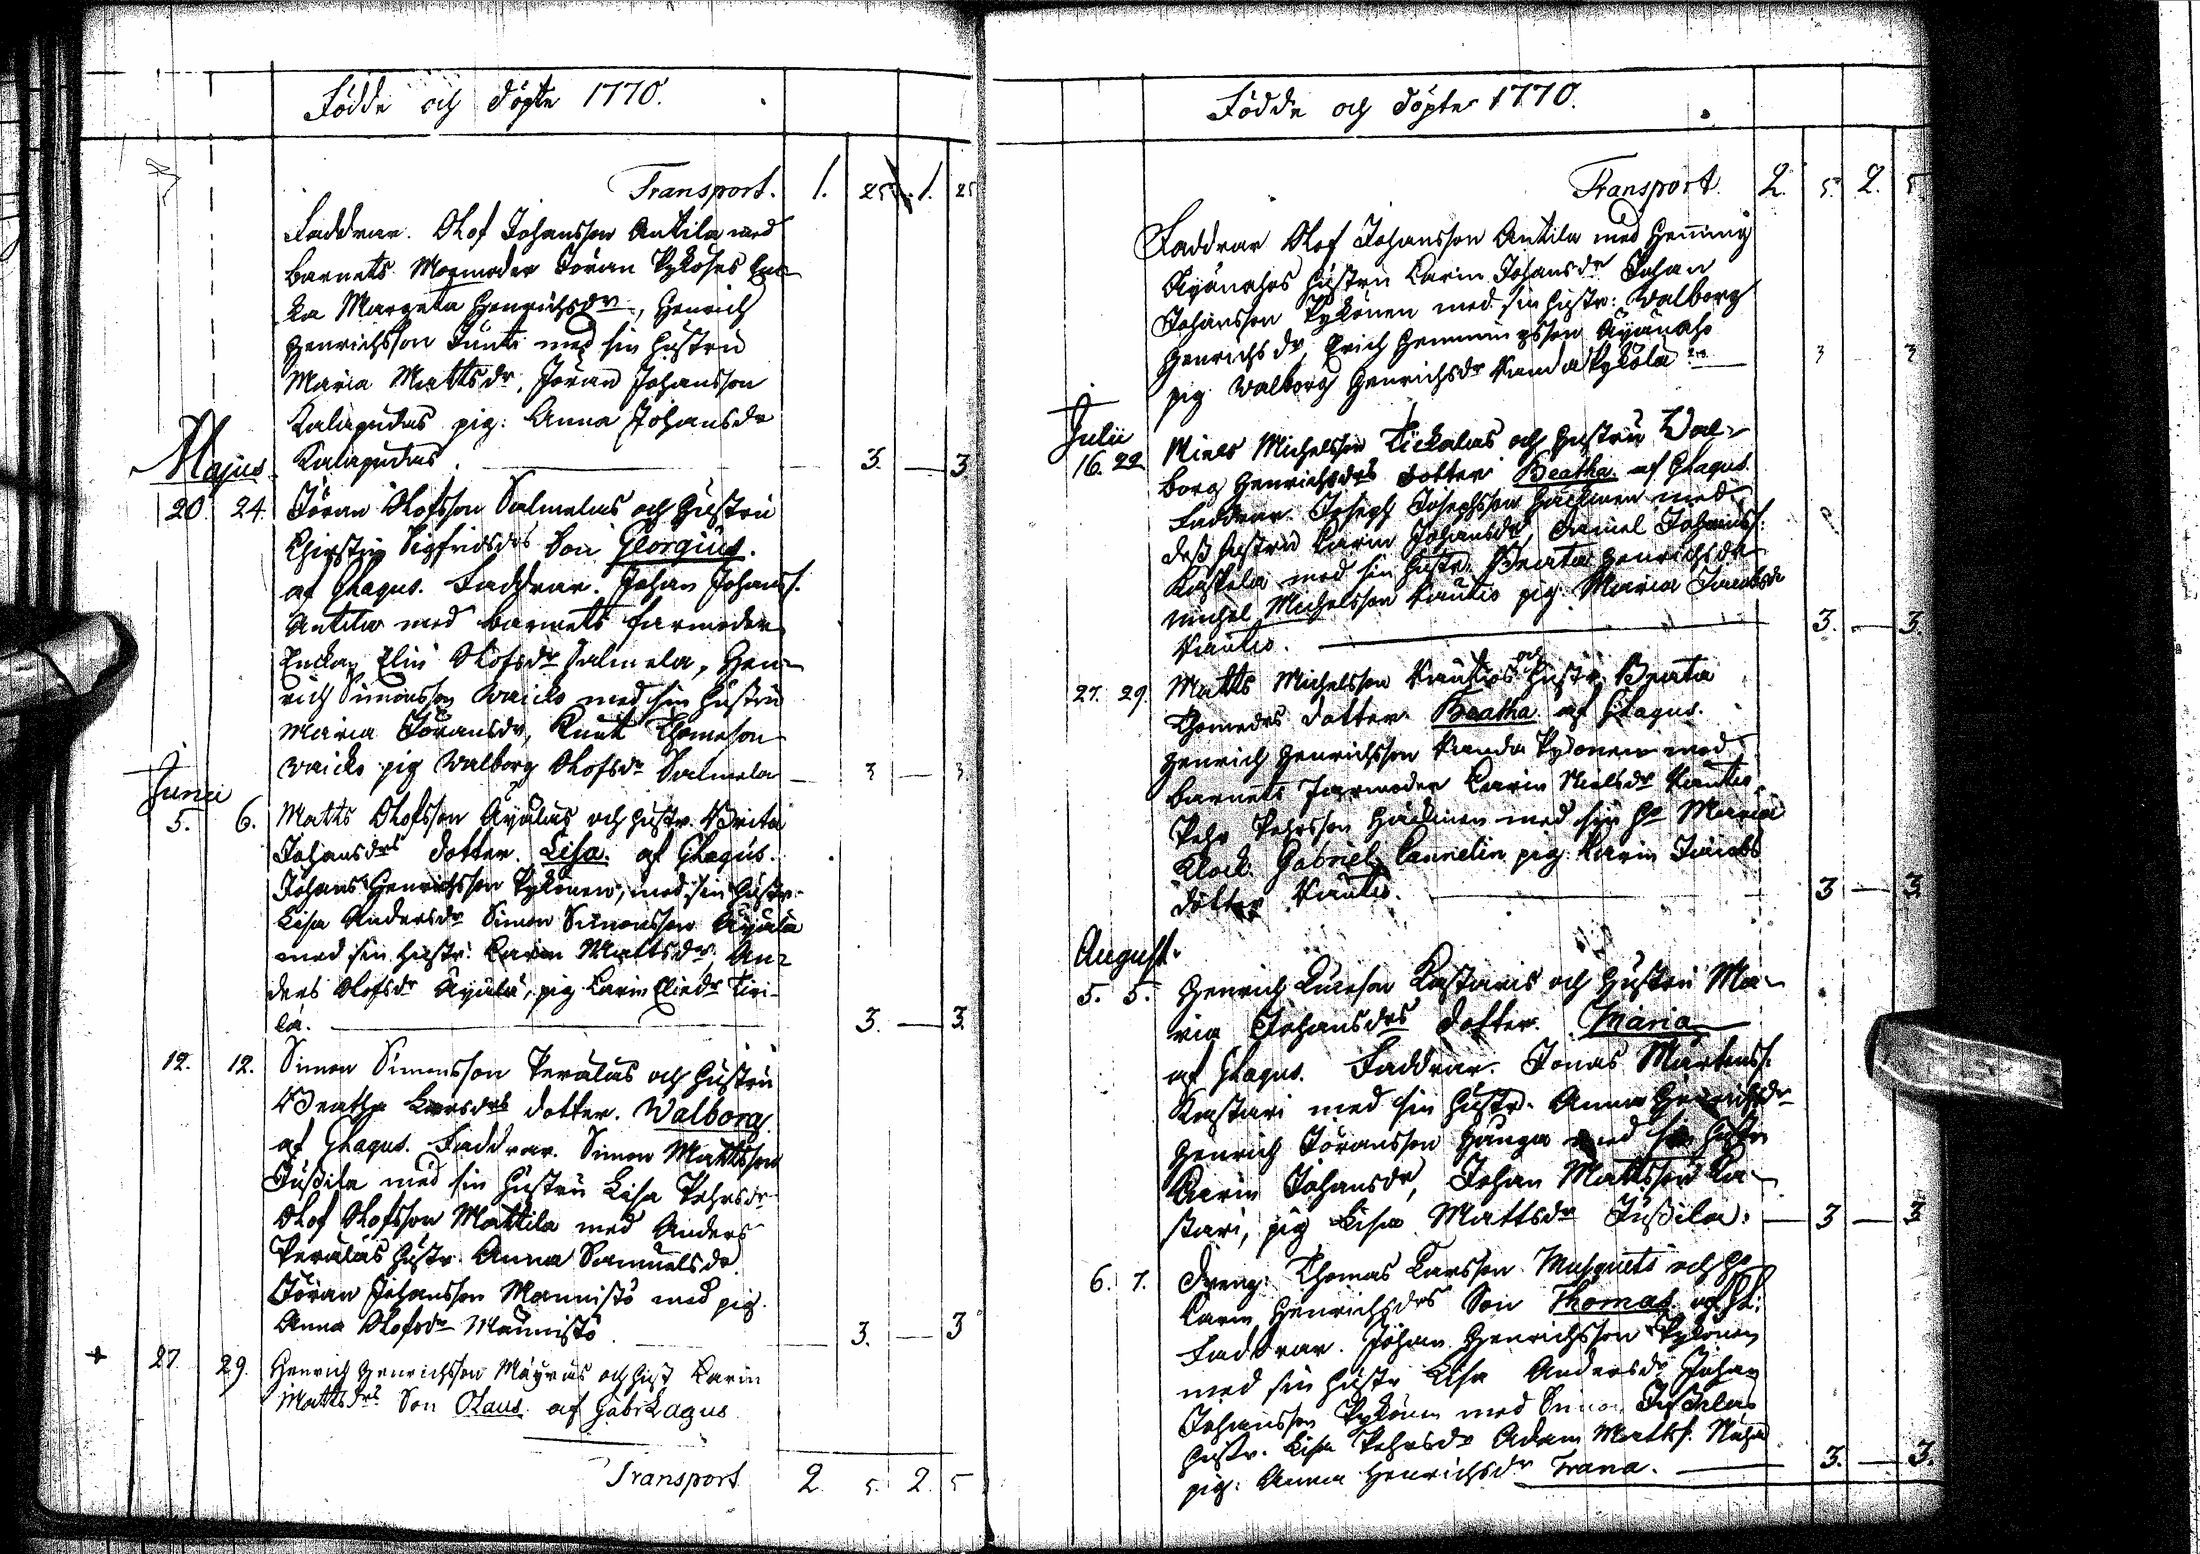 Födde och döpte 1770.
Transport. 1. 25. 1. 25
Faddrar. Olof Johansson Antila med
barnets Mormoder Jöran Pyköses En-
ka Margeta Henrichsdr, Henrich
Henrichsson Junti med sin hustru
Maria Mattsdr, Jöran Johansson
Kalapudas pig: Anna Johansdr
Kalapudas 3. — 3.
Majus
20. 24. Jöran Olofsson Salmelas och hustru
Chirstin Sigfridsdrs Son Georgius.
af Gagus. Faddrar. Johan Johanss.
Antila med barnets farmoder
Enckan Elin Olofsdr Salmela, Hen-
rich Simonsson Waicko med sin hustru
Maria Jöransdr, Knut Thomeson
Waicko pig Walborg Olofsdr Salmela — 3 — 3.
Junii
5. 6. Matts Olofsson Äyälas och hustr. Brita
Johansdrs dotter. Lisa. af Gagus.
Johan Henrichsson Pykönen, med sin hustr.
Lisa Andersdr Simon Simonsson Äyälä
med sin hustr: Karin Mattsdr. An-
ders Olofsdr Äyälä, pig Karin Eliedr
la. 3. — 3.
12. 12. Simon Simonsson Peralas och hustru
Beatha Larsdrs dotter. Walborg.
af Gagus. Faddrar. Simon Mattsson
Jussila med sin hustru Lisa Pehrsdr
Olof Olofsson Mattila med Anders
Peralas hustr. Anna Samuelsdr
Jöran Johansson Mannistö med pig.
Anna Olofsdr Mannistö 3. — 3
+ 27 29. Henrich Henrichsson Mäyräs och hust Karin
Mattsdrs Son Olaus af Gabr Lagus
Transport 2. 5. 2. 5
Födde och döpte 1770.
Transport. 2. 5. 2. 5
Faddrar Olof Johansson Antila med Henning
hustru Karin Johansdr Johan
Johansson Pykönen med sin hustr: Walborg
Henrichsdr, Erich Henningsson
pig Walborg Henrichsdr 3 3
Julii
16. 22. Niels Michelsson och hustru Wal-
borg Henrichsdrs dotter Beatha af Gagus.
Faddrar. Joseph Josephsson med
dess hustru Karin Johansdr, Daniel Johanss.
med sin hustr. Beata Henrichsdr
Michel Michelsson Rautio pig Maria Jacobsdr
Rautio. 3. — 3.
27. 29. Matts Michelsson Rautios och hustr. Beata
Thomedrs dotter. Beatha af Gagus.
Henrich Henrichsson Pykönen med
barnets farmoder Karin Nielsdr Rautio
Pehr Pehrsson med sin hu Maria
Klock. Gabriel Cannelin pig: Karin Jacobs
dotter Rautio. 3 — 3
August.
5. 5. Henrich och hustru Ma-
ria Johansdrs dotter. Maria
af Gagus. Faddrar. Jonas Mårtenss.
Kastari med sin hustr. Anna Henrichsdr
Henrich Jöransson Hanga med sin hustr
Karin Johansdr, Johan Mattsson Ka-
stari, pig Lisa Mattsdr Jussila. — 3 — 3
6. 7. Dreng: Thomas Larsson Musquets och hu
Karin Henrichsdrs Son Thomas af GL:
Faddrar. Johan Henrichsson Pykönen
med sin hustr Lisa Andersdr Johan
Johansson Pykönen med Simon Jussilas
hustr. Lisa Pehrsdr Adam Mattss.
pig: Anna Henrichsdr Frana. 3. — 3.